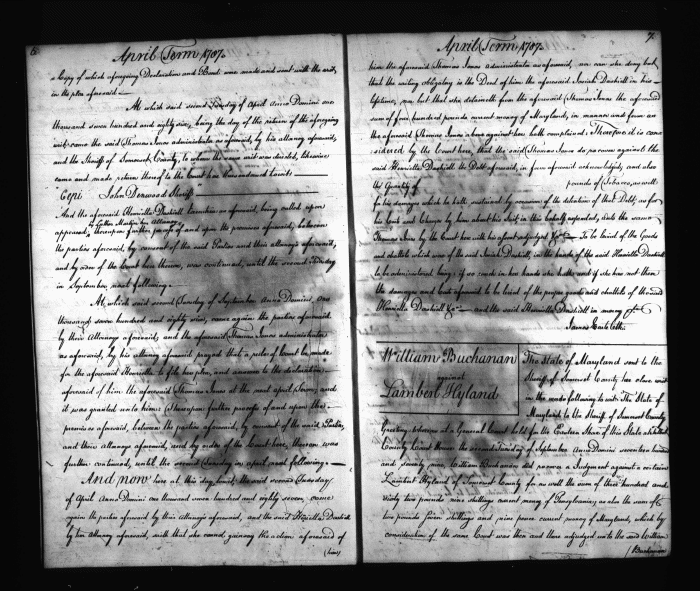 6
April Term 1787.
a Copy of which aforegoing Declaration and Bond were made and sent with the writ,
in the plea aforesaid —
At which said second Tuesday of April Anno Domini one
thousand seven hundred and eighty six, being the day of the return of the aforegoing
writ came the said Thomas Jones administrator as aforesaid, by his attorney aforesaid,
and the Sheriff of Somerset County, to whom the same writ was directed, likewise
came and made return thereof to the Court here thus endorsed towit —
Cepi John Denwood Sheriff
And the aforesaid Henrietta Dashiell Executrix as aforesaid, being called upon
appeared, by Luther Martin her Attorney thereupon further process of and upon the premises aforesaid, between
the parties aforesaid, by consent of the said Parties and their attorneys aforesaid,
and by order of the Court here thereon, was continued, until the second Tuesday
in September next following. —
At which said second Tuesday of September Anno Domini one
thousand seven hundred and eighty six, came again the parties aforesaid
by their Attorneys aforesaid, and the aforesaid Thomas Jones administrator
as aforesaid, by his attorney aforesaid prayed that a rule of Court be made
for the aforesaid Henrietta to file her plea, and answer to the declaration
aforesaid of him the aforesaid Thomas Jones at the next April Term; and
it was granted unto him; thereupon further process of and upon the
premises aforesaid, between the parties aforesaid, by consent of the said Parties,
and their Attorneys aforesaid, and by order of the Court here, thereon was
further continued, until the second Tuesday in April next following. —
And now here at this day, towit, the said second Tuesday
of April Anno Domini one thousand seven hundred and eighty seven, came
again the parties aforesaid by their Attorneys aforesaid, and the said Henrietta Dashiell
by her attorney aforesaid, saith that she cannot gainsay the action aforesaid of
(him)
April Term 1787.
7
him the aforesaid Thomas Jones administrator as aforesaid, nor can she deny but
that the writing obligatory is the Deed of him the aforesaid Josiah Dashiell in his
lifetime, nor but that she detaineth from the aforesaid Thomas Jones the aforesaid
sum of five hundred pounds current money of Maryland, in manner and form as
the aforesaid Thomas Jones above against her hath complained: Therefore it is con
sidered by the Court here, that the said Thomas Jones do recover against the
said Henrietta Dashiell the Debt aforesaid, in form aforesaid acknowledged; and also
the Quantity of pounds of Tobacco, as well
for his damages which he hath sustained by occasion of the detention of that Debt, as for
his costs and charges by him about his suit in this behalf expended, unto the same
Thomas Jones by the Court here with his assent adjudged &c. — To be levied of the Goods
and chattels which were of the said Josiah Dashiell, in the hands of the said Henrietta Dashiell
to be administered being; if so much in her hands she hath and if she has not then
the damages and costs aforesaid to be levied of the proper goods and chattels of the said
Henrietta Dashiell &c. — and the said Henrietta Dashiell in mercy &c.
James Earle Clk.
William Buchanan
against
Lambert Hyland
The State of Maryland sent to the
Sheriff of Somerset County his close writ
in the words following to wit. The State of
Maryland to the Sheriff of Somerset County
Greeting: whereas at a General Court held for the Eastern Shore of this State at Talbot
County Court House the second Tuesday of September Anno Domini seventeen hundred
and seventy nine, William Buchanan did recover a Judgment against a certain
Lambert Hyland of Somerset County for as well the sum of three hundred and
thirty two pounds nine shillings current money of Pennsylvania, as also the sum of
two pounds seven shillings and nine pence current money of Maryland, which by
consideration of the same Court was then and there adjudged unto the said William
(Buchanan